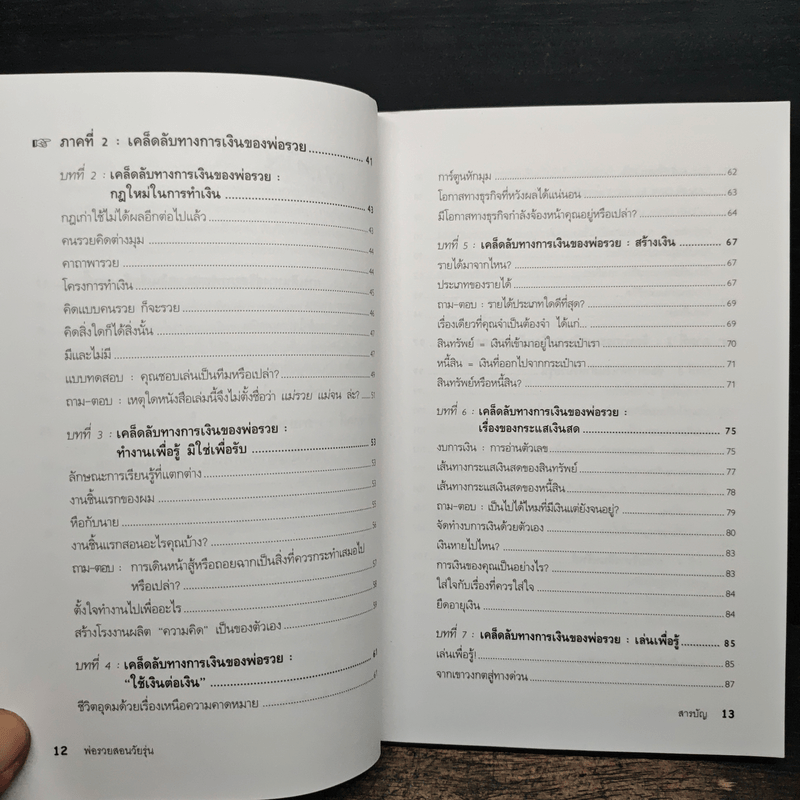 ☞ ภาคที่ 2 : เคล็ดลับทางการเงินของพ่อรวย 41
บทที่ 2 : เคล็ดลับทางการเงินของพ่อรวย :
กฎใหม่ในการทำเงิน 43
กฎเก่าใช้ไม่ได้ผลอีกต่อไปแล้ว 43
คนรวยคิดต่างมุม 44
คาถาพารวย 44
โครงการทำเงิน 45
คิดแบบคนรวย ก็จะรวย
คิดสิ่งใดก็ได้สิ่งนั้น
มีและไม่มี
แบบทดสอบ : คุณชอบเล่นเป็นทีมหรือเปล่า?
ถาม-ตอบ : เหตุใดหนังสือเล่มนี้จึงไม่ตั้งชื่อว่า แม่รวย แม่จน ล่ะ? 51
บทที่ 3 : เคล็ดลับทางการเงินของพ่อรวย :
ทำงานเพื่อรู้ มิใช่เพื่อรับ 53
ลักษณะการเรียนรู้ที่แตกต่าง 53
งานชิ้นแรกของผม 55
หือกับนาย 55
งานชิ้นแรกสอนอะไรคุณบ้าง? 56
ถาม-ตอบ : การเดินหน้าสู้หรือถอยฉากเป็นสิ่งที่ควรกระทำเสมอไป
หรือเปล่า? 57
ตั้งใจทำงานไปเพื่ออะไร 58
สร้างโรงงานผลิต “ความคิด” เป็นของตัวเอง 59
บทที่ 4 : เคล็ดลับทางการเงินของพ่อรวย :
“ใช้เงินต่อเงิน” 61
ชีวิตอุดมด้วยเรื่องเหนือความคาดหมาย
12 พ่อรวยสอนวัยรุ่น
การ์ตูนหักมุม 62
โอกาสทางธุรกิจที่หวังผลได้แน่นอน 63
มีโอกาสทางธุรกิจกำลังจ้องหน้าคุณอยู่หรือเปล่า? 64
บทที่ 5 : เคล็ดลับทางการเงินของพ่อรวย : สร้างเงิน 67
รายได้มาจากไหน? 67
ประเภทของรายได้ 67
ถาม-ตอบ : รายได้ประเภทใดดีที่สุด? 69
เรื่องเดียวที่คุณจำเป็นต้องจำ ได้แก่... 69
สินทรัพย์ = เงินที่เข้ามาอยู่ในกระเป๋าเรา 70
หนี้สิน = เงินที่ออกไปจากกระเป๋าเรา 71
สินทรัพย์หรือหนี้สิน? 71
บทที่ 6 : เคล็ดลับทางการเงินของพ่อรวย :
เรื่องของกระแสเงินสด 75
งบการเงิน : การอ่านตัวเลข 75
เส้นทางกระแสเงินสดของสินทรัพย์ 77
เส้นทางกระแสเงินสดของหนี้สิน 78
ถาม-ตอบ : เป็นไปได้ไหมที่มีเงินแต่ยังจนอยู่? 79
จัดทำงบการเงินด้วยตัวเอง 80
เงินหายไปไหน? 83
การเงินของคุณเป็นอย่างไร? 83
ใส่ใจกับเรื่องที่ควรใส่ใจ 84
ยืดอายุเงิน 84
บทที่ 7 : เคล็ดลับทางการเงินของพ่อรวย : เล่นเพื่อรู้ 85
เล่นเพื่อรู้! 85
จากเขาวงกตสู่ทางด่วน 87
สารบัญ 13